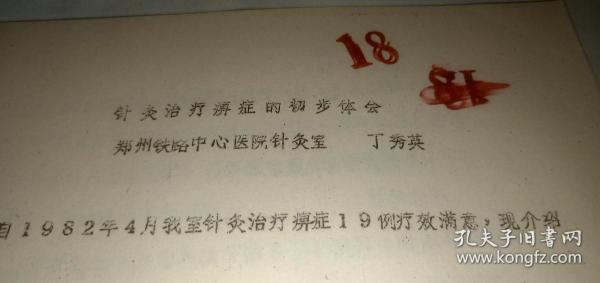 18
18
针灸治疗痹症的初步体会
郑州铁路中心医院针灸室 丁秀英
自1982年4月我室针灸治疗痹症19例疗效满意，现介绍
孔夫子旧书网
www.kongfz.com